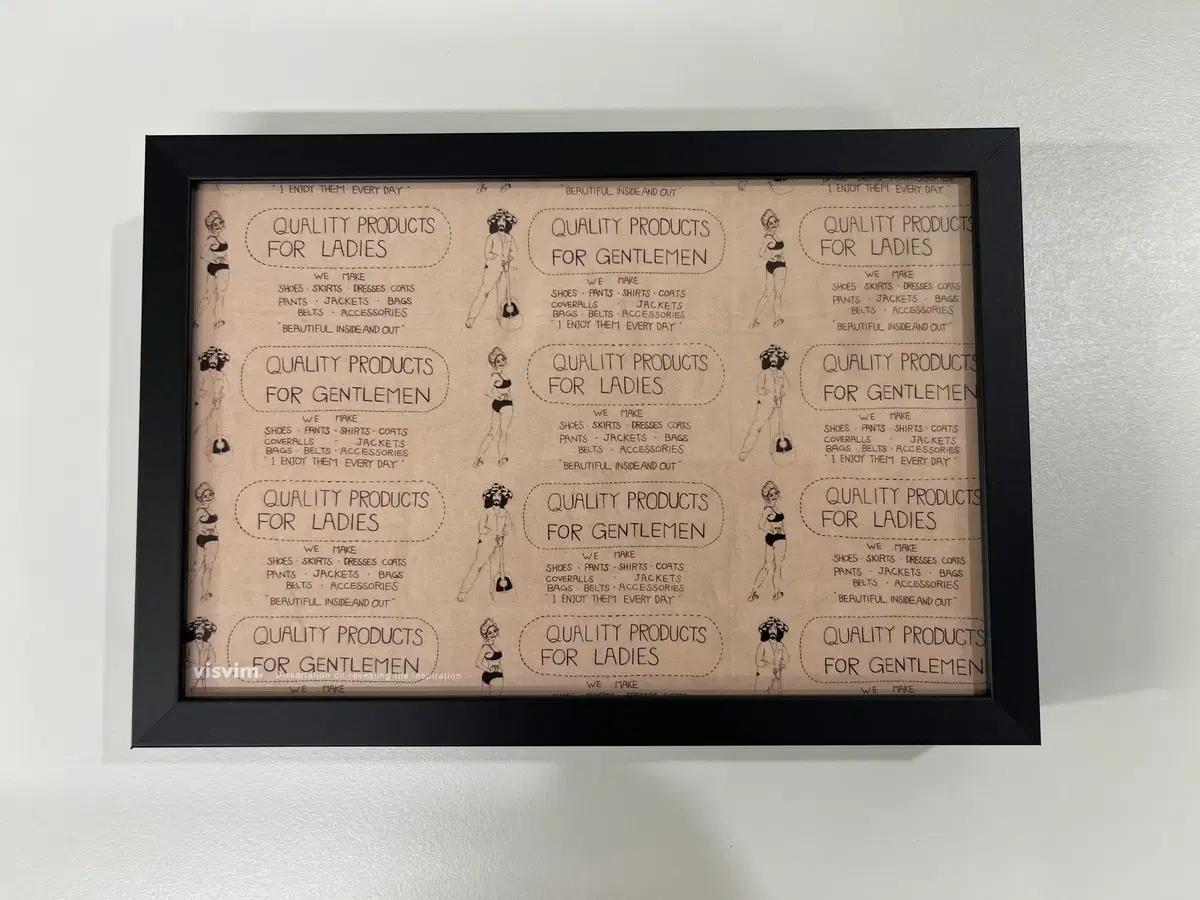 "I ENJOY THEM EVERY DAY"
"BEAUTIFUL INSIDE AND OUT"
"I ENJOY THEM EVERY DAY"
QUALITY PRODUCTS
FOR LADIES
WE MAKE
SHOES · SKIRTS · DRESSES COATS
PANTS · JACKETS · BAGS
BELTS · ACCESSORIES
"BEAUTIFUL INSIDE AND OUT"
QUALITY PRODUCTS
FOR GENTLEMEN
WE MAKE
SHOES · PANTS · SHIRTS · COATS
COVERALLS · JACKETS
BAGS · BELTS · ACCESSORIES
"I ENJOY THEM EVERY DAY"
QUALITY PRODUCTS
FOR LADIES
WE MAKE
SHOES · SKIRTS · DRESSES COATS
PANTS · JACKETS · BAGS
BELTS · ACCESSORIES
"BEAUTIFUL INSIDE AND OUT"
QUALITY PRODUCTS
FOR GENTLEMEN
WE MAKE
SHOES · PANTS · SHIRTS · COATS
COVERALLS · JACKETS
BAGS · BELTS · ACCESSORIES
"I ENJOY THEM EVERY DAY"
QUALITY PRODUCTS
FOR LADIES
WE MAKE
SHOES · SKIRTS · DRESSES COATS
PANTS · JACKETS · BAGS
BELTS · ACCESSORIES
"BEAUTIFUL INSIDE AND OUT"
QUALITY PRODUCTS
FOR GENTLEMEN
WE MAKE
SHOES · PANTS · SHIRTS · COATS
COVERALLS · JACKETS
BAGS · BELTS · ACCESSORIES
"I ENJOY THEM EVERY DAY"
QUALITY PRODUCTS
FOR LADIES
WE MAKE
SHOES · SKIRTS · DRESSES COATS
PANTS · JACKETS · BAGS
BELTS · ACCESSORIES
"BEAUTIFUL INSIDE AND OUT"
QUALITY PRODUCTS
FOR GENTLEMEN
WE MAKE
SHOES · PANTS · SHIRTS · COATS
COVERALLS · JACKETS
BAGS · BELTS · ACCESSORIES
"I ENJOY THEM EVERY DAY"
QUALITY PRODUCTS
FOR LADIES
WE MAKE
SHOES · SKIRTS · DRESSES COATS
PANTS · JACKETS · BAGS
BELTS · ACCESSORIES
"BEAUTIFUL INSIDE AND OUT"
QUALITY PRODUCTS
FOR GENTLEMEN
visvim. Dissertation on revealing the inspiration
WE MAKE
QUALITY PRODUCTS
FOR LADIES
WE MAKE
QUALITY PRODUCTS
FOR GENTLEMEN
WE MAKE